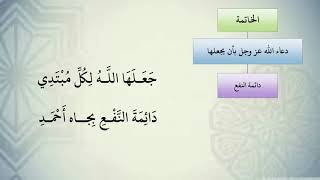 الخاتمة
دعاء الله عز وجل بأن يجعلها
دائمة النفع
جَعَلَهَا اللَّهُ لِكُلِّ مُبْتَدِي
دَائِمَةَ النَّفْعِ بِجَاهِ أَحْمَدِ